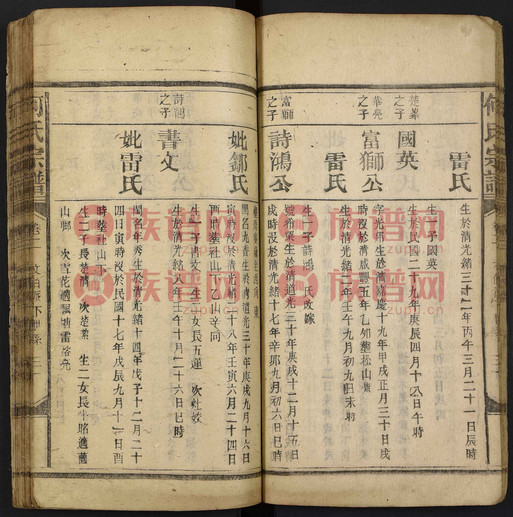 何氏宗譜
雷氏
生於清光緒三十二年丙午三月二十一日辰時
生一子國英
楚藻之子
國英
生於民國二十九年庚辰四月十八日午時
春亮之子
富獅公
字光 生於清嘉慶十九年甲戌正月三十日戌
時沒於清咸豐五年乙卯 葬松山
雷氏
生 沒於清光緒二年 午九月初九日未時
生一子詩鴻 氏改嫁
富獅之子
詩鴻公
號 生於清道光三十年庚戌十二月十五日
戌時沒於清光緒十七年辛卯九月初六日巳時
妣鄒氏
閨名九香生於清道光三十年庚戌九月十六日
寅時沒於清光緒二十八年壬寅六月二十四日
酉時葬社山 乙山辛向
生一子書文 生一女民五運 次社姣
詩鴻之子
書文
生於清光緒八年壬午十月二十六日巳時
妣雷氏
閨名年秀生於清光緒十四年戊子十二月二十
四日寅時沒於民國十七年戊辰九月十一日酉
時葬社山下
生二子長楚清 次楚藻 生二女長牛 適舊
山鄉 次雪花適瓢塘雷洛亮
何氏宗譜
卷二
族譜网
zupu.cn